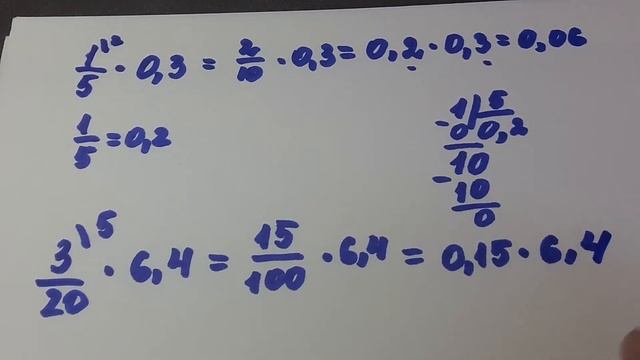 1/5 ⁽² · 0,3 = 2/10 · 0,3 = 0,2 · 0,3 = 0,06
1/5 = 0,2
- 1 | 5
0 0,2
- 10
10
0
3/20 ⁽⁵ · 6,4 = 15/100 · 6,4 = 0,15 · 6,4